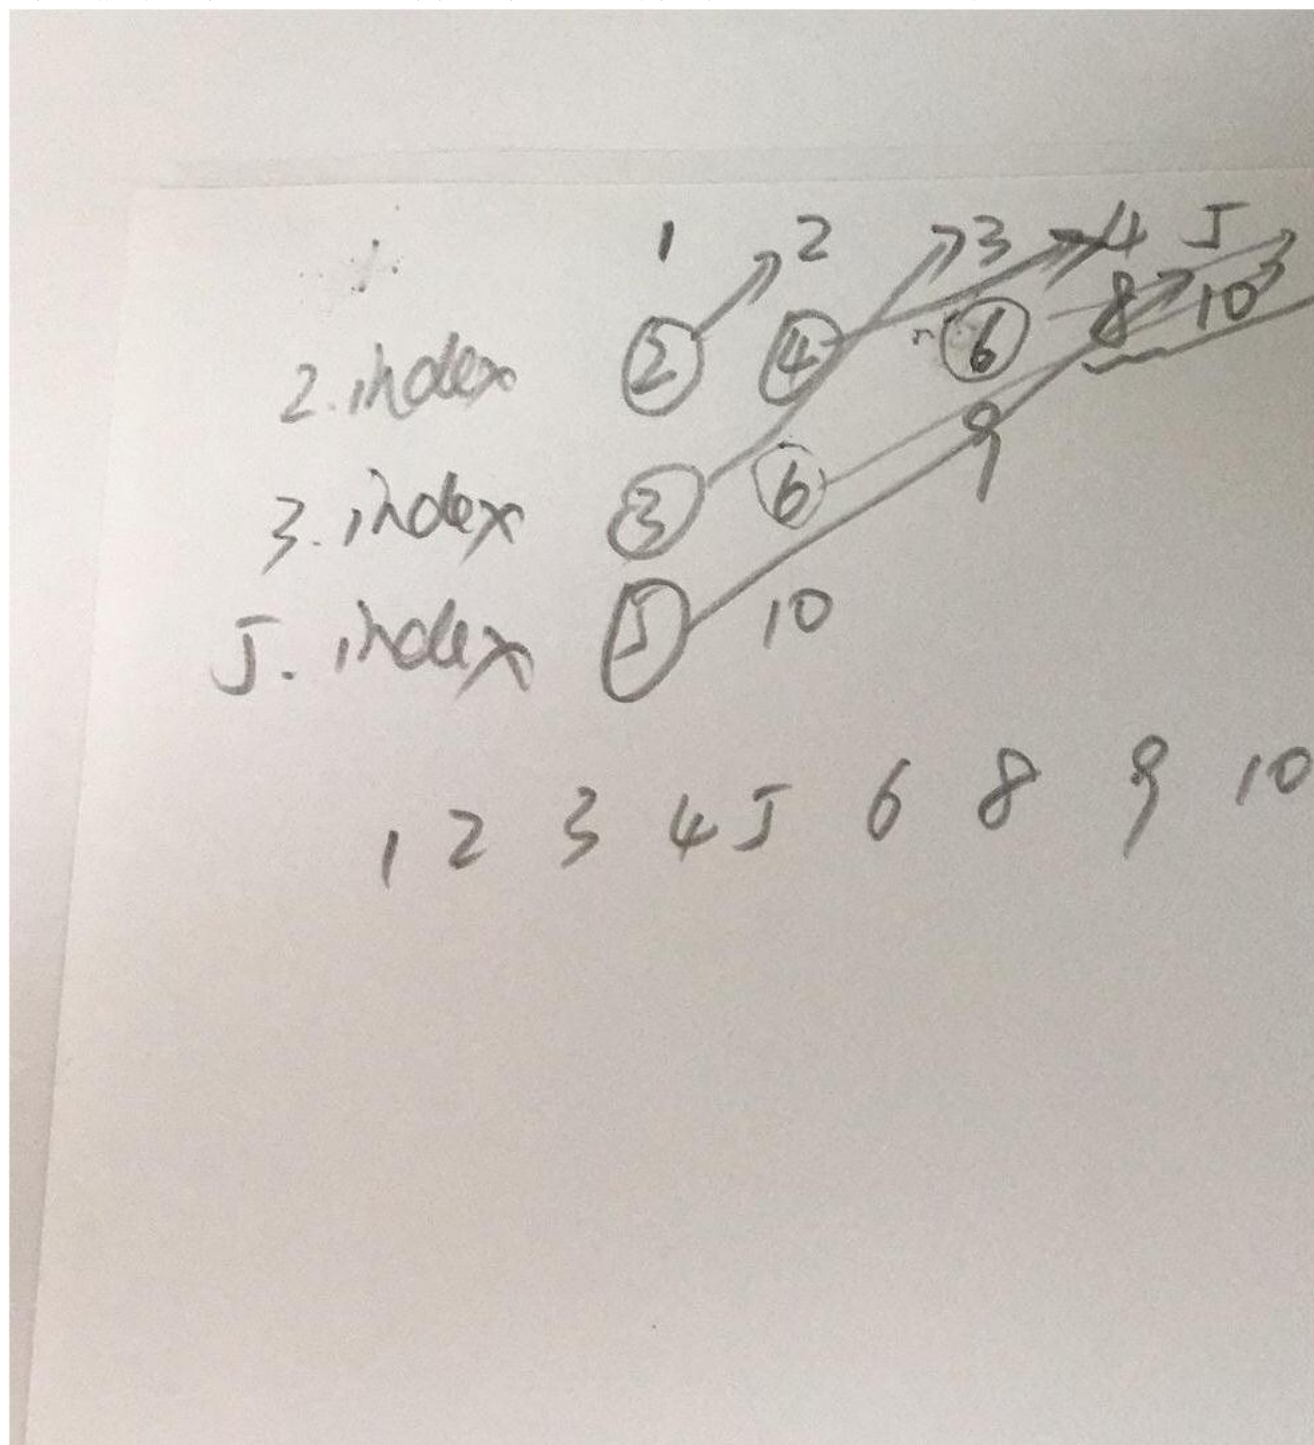 1 2 3 4 5
2.index 2 4 6 8 10
3.index 3 6 9
5.index 5 10
1 2 3 4 5 6 8 9 10